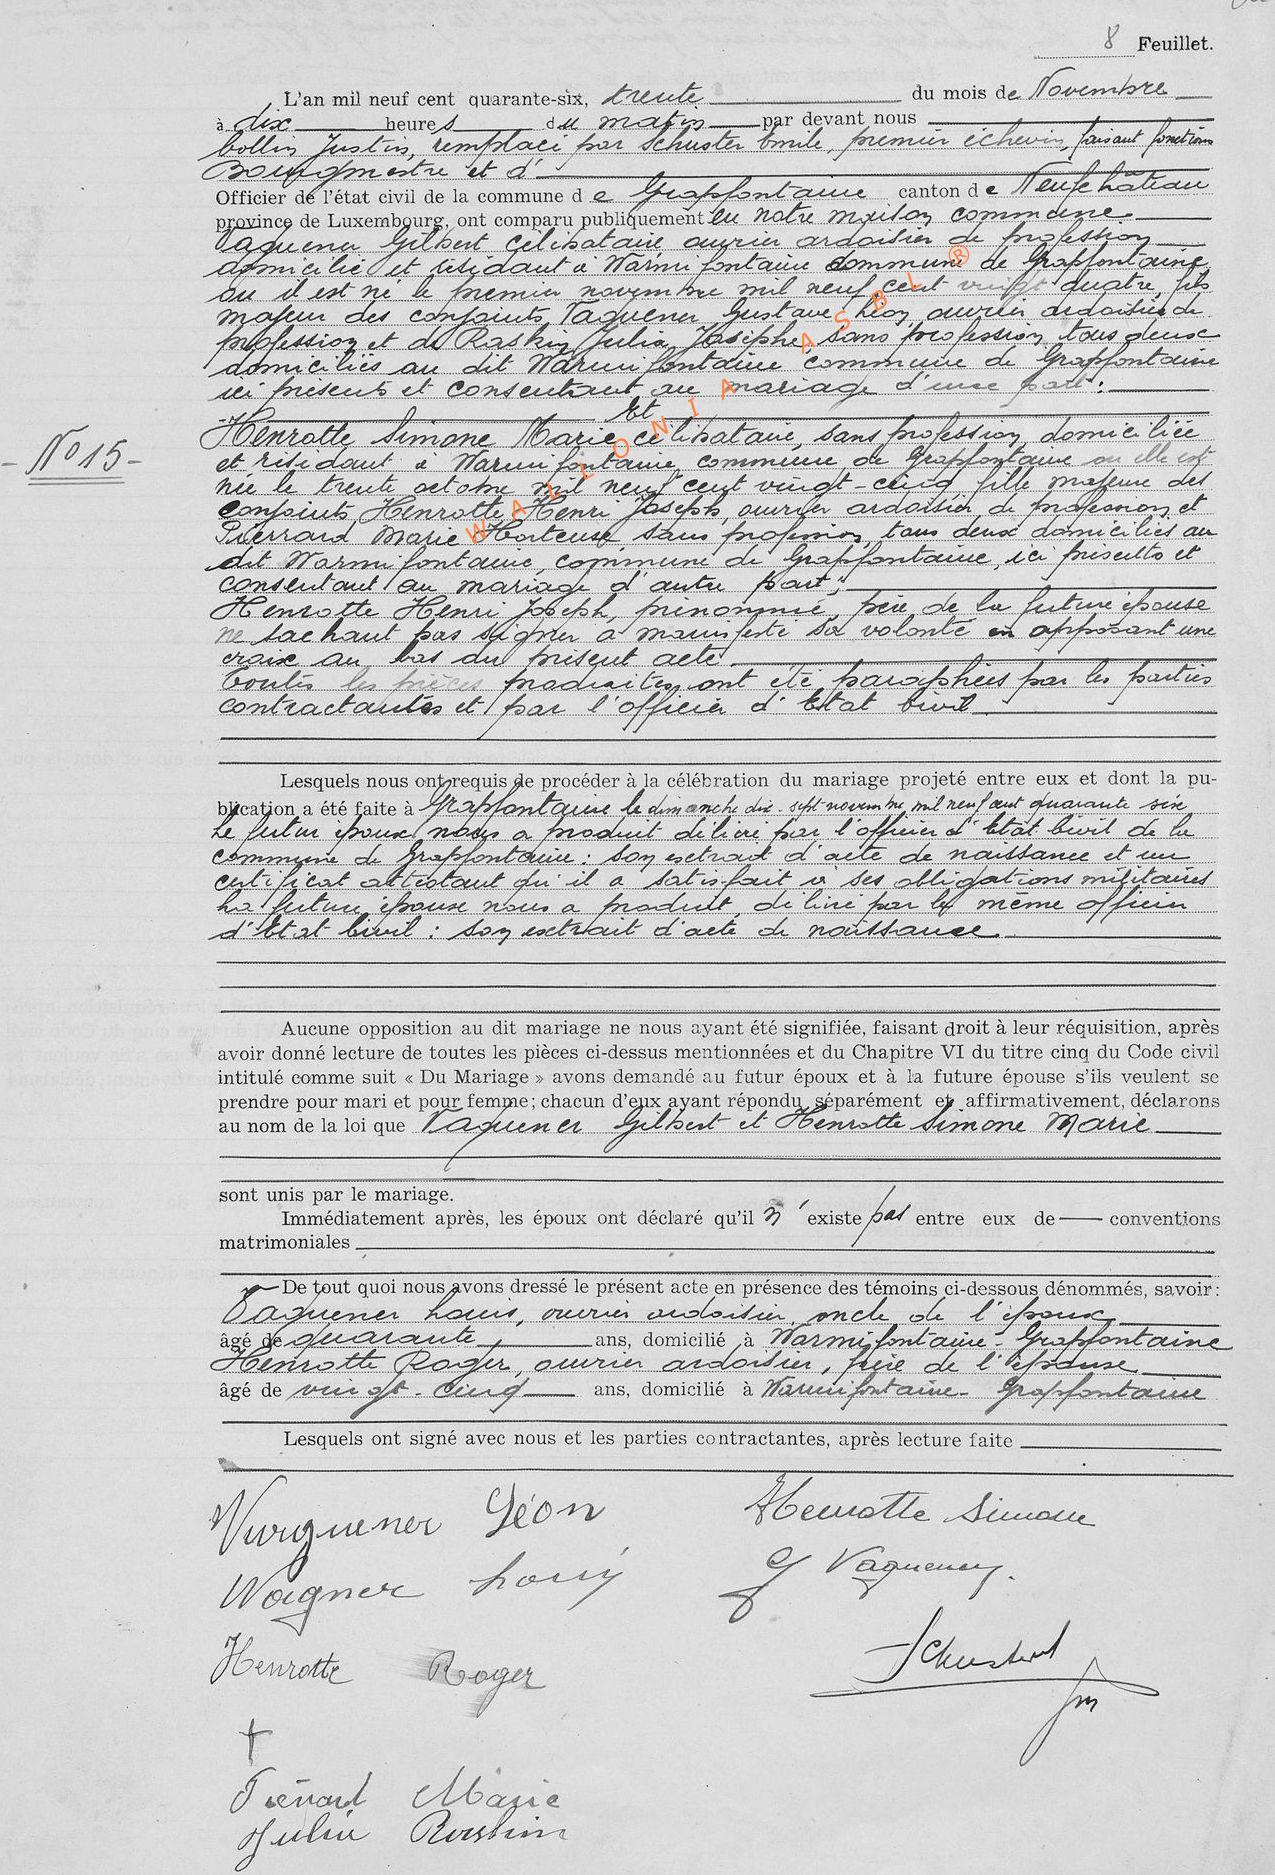 8 Feuillet.
L'an mil neuf cent quarante-six, trente du mois de Novembre
à dix heures du matin par devant nous
Collin Justin, remplacé par Schuster Emile, premier échevin, faisant fonctions
Bourgmestre et d'
Officier de l'état civil de la commune de Grapfontaine canton de Neufchâteau
province de Luxembourg, ont comparu publiquement en notre maison commune
Vaguener Gilbert célibataire, ouvrier ardoisier de profession
domicilié et résidant à Warmifontaine commune de Grapfontaine
où il est né le premier novembre mil neuf cent vingt quatre, fils
majeur des conjoints Vaguener Gustave Léon ouvrier ardoisier de
profession et de Raskin Julia Josèphe, sans profession, tous deux
domiciliés au dit Warmifontaine commune de Grapfontaine
ici présents et consentant au mariage d'une part;
Et
Henrotte Simone Marie célibataire, sans profession, domiciliée
- No 15 -
et résidant à Warmifontaine commune de Grapfontaine où elle est
née le trente octobre mil neuf cent vingt-cinq fille majeure des
conjoints Henrotte Henri Joseph, ouvrier ardoisier de profession et
Pierrard Marie Hortense sans profession, tous deux domiciliés au
dit Warmifontaine, commune de Grapfontaine, ici présents et
consentant au mariage d'autre part;
Henrotte Henri Joseph, prénommé, père de la future épouse
ne sachant pas signer a manifesté sa volonté en apposant une
croix au bas du présent acte.
Toutes les pièces produites ont été paraphées par les parties
contractantes et par l'officier d'Etat Civil
Lesquels nous ont requis de procéder à la célébration du mariage projeté entre eux et dont la pu-
blication a été faite à Grapfontaine le dimanche dix-sept novembre mil neuf cent quarante six
Le futur époux nous a produit délivré par l'officier d'Etat Civil de la
commune de Grapfontaine : son extrait d'acte de naissance et un
certificat attestant qu'il a satisfait à ses obligations militaires
La future épouse nous a produit, délivré par le même officier
d'Etat Civil : son extrait d'acte de naissance.
Aucune opposition au dit mariage ne nous ayant été signifiée, faisant droit à leur réquisition, après
avoir donné lecture de toutes les pièces ci-dessus mentionnées et du Chapitre VI du titre cinq du Code civil
intitulé comme suit « Du Mariage » avons demandé au futur époux et à la future épouse s'ils veulent se
prendre pour mari et pour femme; chacun d'eux ayant répondu séparément et affirmativement, déclarons
au nom de la loi que Vaguener Gilbert et Henrotte Simone Marie
sont unis par le mariage.
Immédiatement après, les époux ont déclaré qu'il n'existe pas entre eux de conventions
matrimoniales
De tout quoi nous avons dressé le présent acte en présence des témoins ci-dessous dénommés, savoir :
Vaguener Louis, ouvrier ardoisier, oncle de l'époux
âgé de quarante ans, domicilié à Warmifontaine-Grapfontaine
Henrotte Roger, ouvrier ardoisier, frère de l'épouse
âgé de vingt-cinq ans, domicilié à Warmifontaine-Grapfontaine
Lesquels ont signé avec nous et les parties contractantes, après lecture faite
Léon Henrotte Simone
Wagner Louis G Vaguener.
Henrotte Roger Schuster
Marie
Julia
WALLONIA ASBL ®